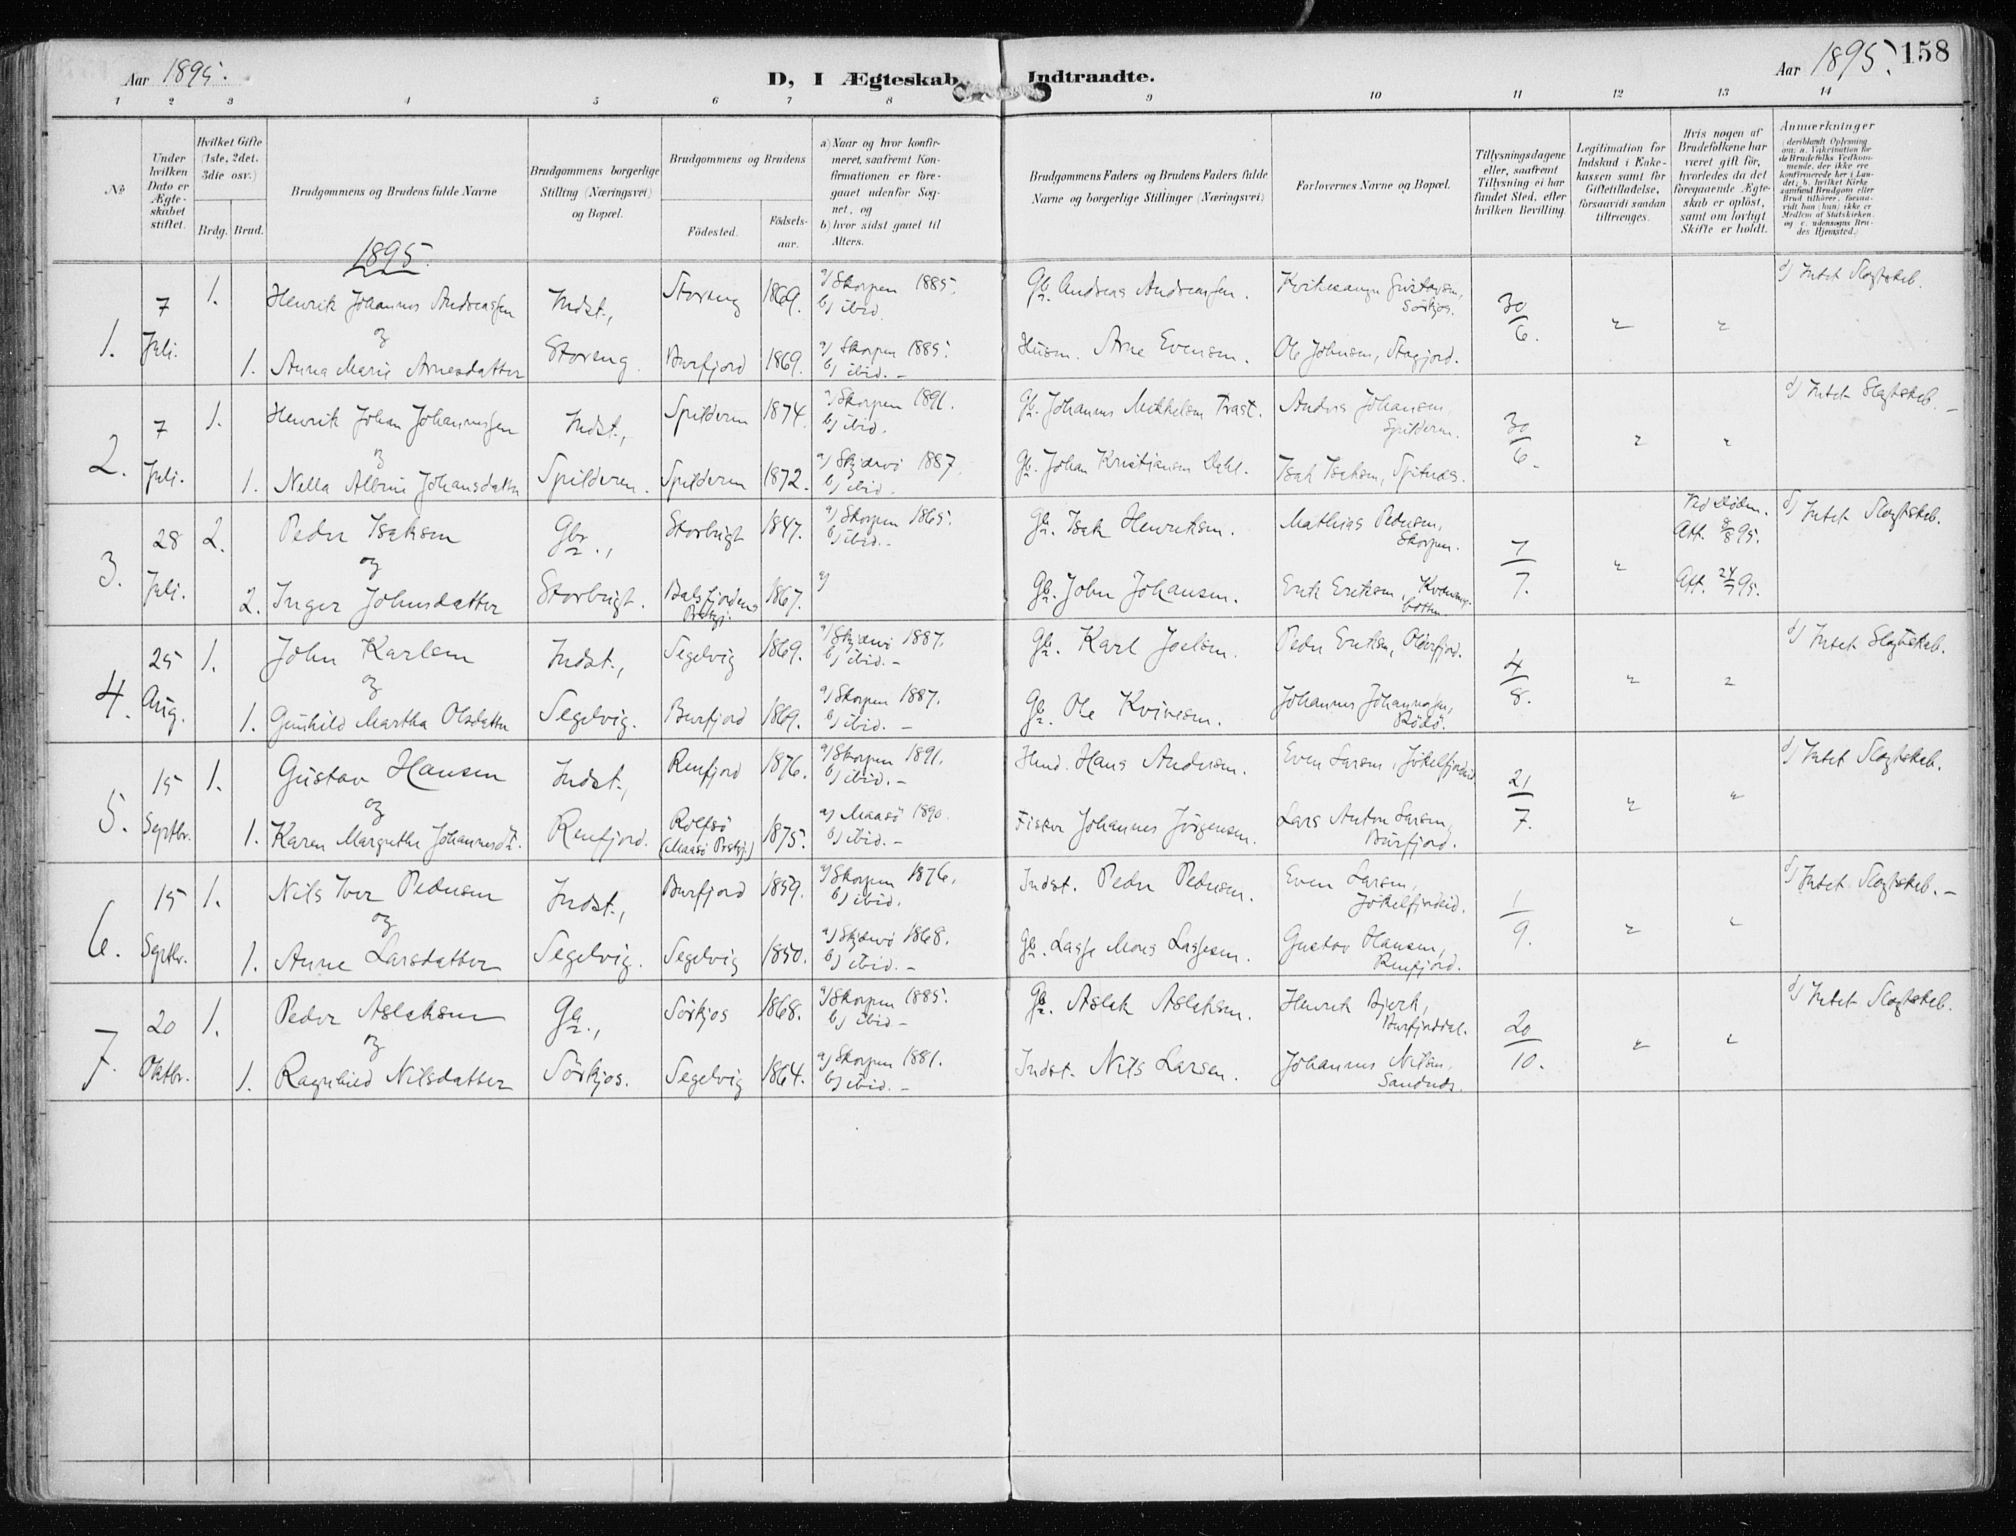 Aar 1895.
D, I Ægteskab Indtraadte.
Aar 1895. 158
1 2 3 4 5 6 7 8 9 10 11 12 13 14
No
Under hvilken Dato er Ægteskabet stiftet.
Hvilket Gifte (1ste, 2det, 3die osv.)
Brdg. Brud.
Brudgommens og Brudens fulde Navne
Brudgommens borgerlige Stilling (Næringsvei) og Bopæl.
Brudgommens og Brudens
Födested. Födselsaar.
a) Naar og hvor konfirmeret, saafremt Konfirmationen er foregaaet udenfor Sognet, og
b) hvor sidst gaaet til Alters.
Brudgommens Faders og Brudens Faders fulde Navne og borgerlige Stillinger (Næringsvei)
Forlovernes Navne og Bopæl.
Tillysningsdagene eller, saafremt Tillysning ei har fundet Sted, efter hvilken Bevilling.
Legitimation for Indskud i Enkekassen samt for Giftetilladelse, forsaavidt saadan tiltrænges.
Hvis nogen af Brudefolkene har været gift för, hvorledes da det foregaaende Ægteskab er oplöst, samt om lovligt Skifte er holdt.
Anmærkninger
(deriblandt Oplysning om: a. Vakcination for de Brudefolks Vedkommende, der ikke ere konfirmerede her i Landet, b. hvilket Kirkesamfund Brudgom eller Brud tilhører, forsaavidt han (hun) ikke er Medlem af Statskirken, og c. udensogns Brudes Hjemsted.)
1895.
1. 7 Juli. 1. Henrik Johannes Andreassen Indst., Storeng 1869. a) Skorpen 1885. b) ibid. Gb. Andreas Andreassen. Kvitesaungn Gustavsen, Sörkjos. 30/6. " " d) Intet Slagtskab.
og
1. Anna Marie Arnesdatter Storeng. Burfjord 1869. a) Skorpen 1885. b) ibid. – Husm. Arne Evensen. Ole Johnsen,
2. 7 Juli. 1. Henrik Johan Johannessen Indst., Spilderen 1874. a) Skorpen 1891. b) ibid. Gb. Johannes Mikkelsen Trast. Anders Johansen, Spilderen. 30/6. " " d) Intet Slagtskab. –
og
1. Nella Albine Johansdatter Spilderen. Spilderen 1872. a) Skjærvö 1887. b) ibid. Gb. Johan Kristiansen Dahl. Isak Isaksen, Spitnæs.
3. 28 Juli. 2. Peder Isaksen Gbr., Storbugt 1847. a) Skorpen 1865. b) ibid. – Gb. Isak Henriksen. Mathias Pedersen, Skorpen. 7/7. " Ved Döden. Att. 8/8 95. d) Intet Slagtskab.
og
2. Inger Johnsdatter Storbugt. Balsfjordens Prstgj. 1867. a) Gb. John Johansen. Erik Eriksen, Kvænangsbotten. Att. 24/7 95.
4. 25 Aug. 1. John Karlsen Indst., Segelvig 1869. a) Skjærvö 1887. b) ibid. – Gb. Karl Joelsen. Peder Eriksen, Olderfjord. 4/8. " " d) Intet Slagtskab.
og
1. Gunhild Martha Olsdatter Segelvig. Burfjord 1869. a) Skorpen 1887. b) ibid. – Gb. Ole Kvivesen. Johannes Johannessen, Rödö.
5. 15 Septbr. 1. Gustav Hansen Indst., Renfjord 1876. a) Skorpen 1891. b) ibid. – Hans Andersen. Even Larsen, Jökelfjordeid 21/7. " " d) Intet Slagtskab.
og
1. Karen Margrethe Johannesdt. Renfjord. Rolfsö (Maasö Prstgj.) 1875. a) Maasö 1890. b) ibid. – Fisker Johannes Jörgensen. Lars Anton Larsen, Burfjord.
6. 15 Septbr. 1. Nils Iver Pedersen Indst., Burfjord 1859. a) Skorpen 1876. b) ibid. Indst. Peder Pedersen. Even Larsen, Jökelfjordeid. 1/9. " " d) Intet Slagtskab. –
og
1. Anne Larsdatter Segelvig. Segelvig 1850. a) Skjærvö 1868. b) ibid. – Gb. Lasse Mons Lassesen. Gustav Hansen, Renfjord.
7. 20 Oktbr. 1. Peder Aslaksen Gb., Sörkjos 1868. a) Skorpen 1885. b) ibid – Gb. Aslak Aslaksen. Henrik Bjerk, Burfjorddal. 20/10. " " d) Intet Slagtskab.
og
1. Ragnhild Nilsdatter Sörkjos. Segelvig 1864. a) Skorpen 1881. b) ibid. – Indst. Nils Larsen. Johannes Nilsen, Sandnæs.